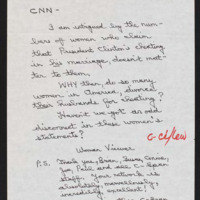 CNN -
I am intrigued by the num-
bers of women who claim
that President Clinton's cheating
in his marriage, doesn't mat-
ter to them.
WHY then, do so many
women in America, divorce
their husbands for cheating?
Haven't we got an odd
disconnect in these women's
statements?
Woman Viewer
P.S. Thank you,
you, and
staff. Your network is
absolutely, marvelously,
incredibly, excellent!